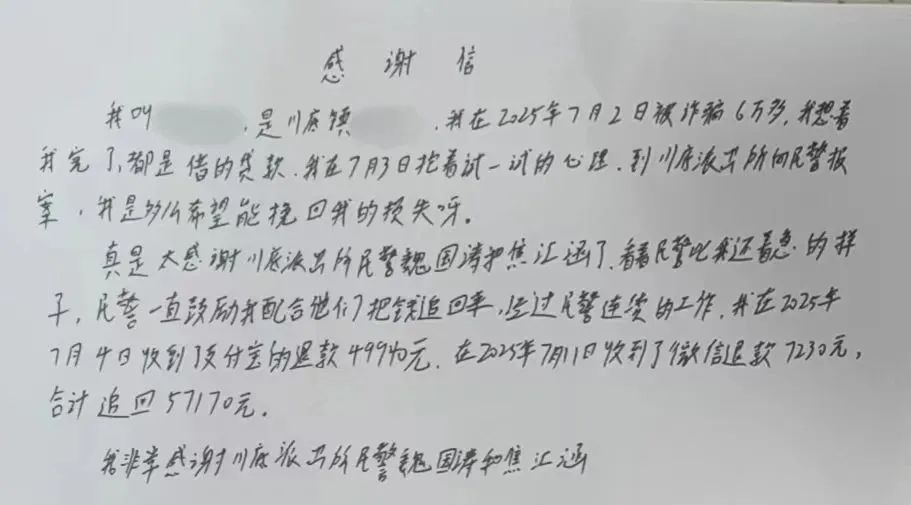 感谢信
我叫 ，是川底镇 ，我在2025年7月2日被诈骗6万多，我想着
我完了，都是借的贷款，我在7月3日抱着试一试的心理，到川底派出所向民警报
案，我是多么希望能挽回我的损失呀。
真是太感谢川底派出所民警魏国涛和焦汇涵了，看着民警比我还着急的样
子，民警一直鼓励我配合他们把钱追回来，经过民警连续的工作，我在2025年
7月4日收到了支付宝的退款49940元，在2025年7月11日收到了微信退款7230元，
合计追回57170元。
我非常感谢川底派出所民警魏国涛和焦汇涵